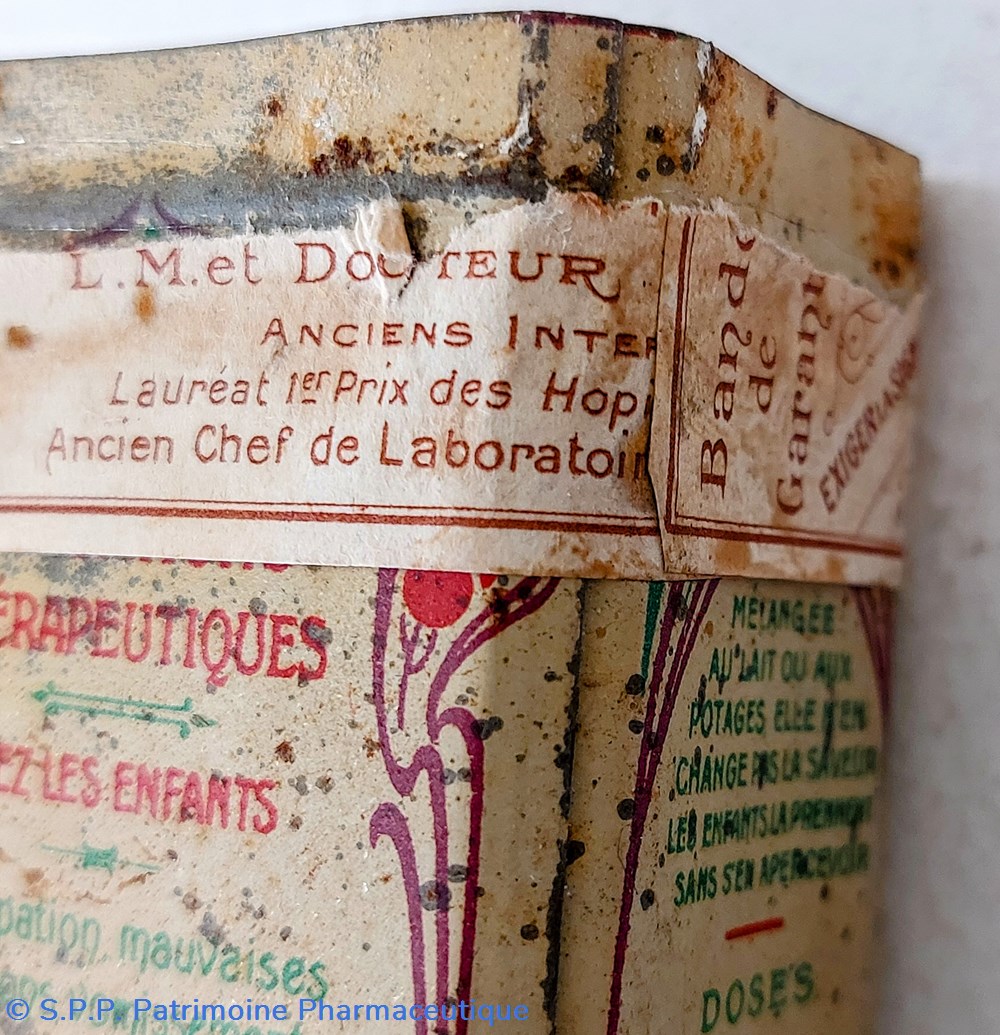 L.M. et DOCTEUR
ANCIENS INTER
Lauréat 1er Prix des Hopi
Ancien Chef de Laboratoir
Bande
de
Garant
EXIGER LA SIG
ÉRAPEUTIQUES
EZ LES ENFANTS
pation mauvaises
MÉLANGÉE
AU LAIT OU AUX
POTAGES ELLE N'EN
CHANGE PAS LA SAVEUR
LES ENFANTS LA PRENNENT
SANS S'EN APERCEVOIR
DOSES
© S.P.P. Patrimoine Pharmaceutique